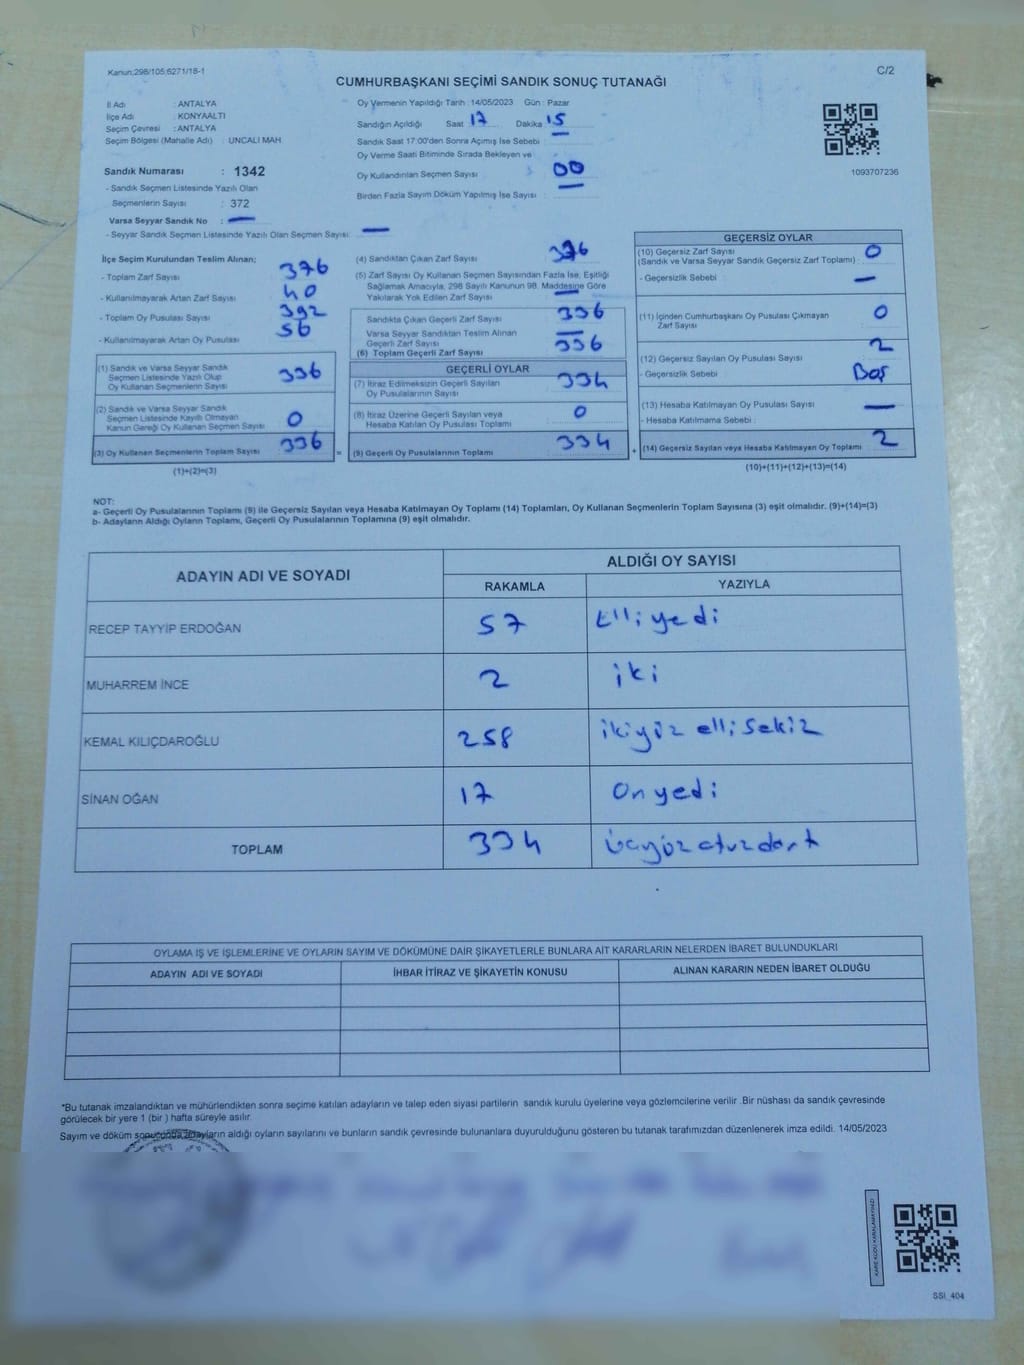 Kanun;298/105;6271/18-1
C/2
CUMHURBAŞKANI SEÇİMİ SANDIK SONUÇ TUTANAĞI
İl Adı : ANTALYA
İlçe Adı : KONYAALTI
Seçim Çevresi : ANTALYA
Seçim Bölgesi (Mahalle Adı) : UNCALI MAH
Sandık Numarası : 1342
- Sandık Seçmen Listesinde Yazılı Olan
Seçmenlerin Sayısı : 372
Varsa Seyyar Sandık No : —
- Seyyar Sandık Seçmen Listesinde Yazılı Olan Seçmen Sayısı: —
Oy Vermenin Yapıldığı Tarih :14/05/2023 Gün : Pazar
Sandığın Açıldığı Saat 17 Dakika 15
Sandık Saat 17:00'den Sonra Açımış İse Sebebi : —
Oy Verme Saati Bitiminde Sırada Bekleyen ve
Oy Kullandırılan Seçmen Sayısı : 00
Birden Fazla Sayım Döküm Yapılmış İse Sayısı : —
1093707236
İlçe Seçim Kurulundan Teslim Alınan;
- Toplam Zarf Sayısı 376
- Kullanılmayarak Artan Zarf Sayısı 40
- Toplam Oy Pusulası Sayısı 392
- Kullanılmayarak Artan Oy Pusulası 56
(1) Sandık ve Varsa Seyyar Sandık
Seçmen Listesinde Yazılı Olup
Oy Kullanan Seçmenlerin Sayısı 336
(2) Sandık ve Varsa Seyyar Sandık
Seçmen Listesinde Kayıtlı Olmayan
Kanun Gereği Oy Kullanan Seçmen Sayısı 0
(3) Oy Kullanan Seçmenlerin Toplam Sayısı 336
(1)+(2)=(3)
(4) Sandıktan Çıkan Zarf Sayısı
(5) Zarf Sayısı Oy Kullanan Seçmen Sayısından Fazla İse, Eşitliği
Sağlamak Amacıyla, 298 Sayılı Kanunun 98. Maddesine Göre
Yakılarak Yok Edilen Zarf Sayısı —
Sandıkta Çıkan Geçerli Zarf Sayısı 336
Varsa Seyyar Sandıktan Teslim Alınan
Geçerli Zarf Sayısı —
(6) Toplam Geçerli Zarf Sayısı 336
GEÇERLİ OYLAR
(7) İtiraz Edilmeksizin Geçerli Sayılan
Oy Pusulalarının Sayısı 334
(8) İtiraz Üzerine Geçerli Sayılan veya
Hesaba Katılan Oy Pusulası Toplamı 0
= (9) Geçerli Oy Pusulalarının Toplamı 334
GEÇERSİZ OYLAR
(10) Geçersiz Zarf Sayısı
(Sandık ve Varsa Seyyar Sandık Geçersiz Zarf Toplamı) : 0
- Geçersizlik Sebebi : —
(11) İçinden Cumhurbaşkanı Oy Pusulası Çıkmayan
Zarf Sayısı 0
(12) Geçersiz Sayılan Oy Pusulası Sayısı 2
- Geçersizlik Sebebi : Boş
(13) Hesaba Katılmayan Oy Pusulası Sayısı —
- Hesaba Katılmama Sebebi :
+ (14) Geçersiz Sayılan veya Hesaba Katılmayan Oy Toplamı 2
(10)+(11)+(12)+(13)=(14)
NOT:
a- Geçerli Oy Pusulalarının Toplamı (9) ile Geçersiz Sayılan veya Hesaba Katılmayan Oy Toplamı (14) Toplamları, Oy Kullanan Seçmenlerin Toplam Sayısına (3) eşit olmalıdır. (9)+(14)=(3)
b- Adayların Aldığı Oyların Toplamı, Geçerli Oy Pusulalarının Toplamına (9) eşit olmalıdır.
ADAYIN ADI VE SOYADI
ALDIĞI OY SAYISI
RAKAMLA YAZIYLA
RECEP TAYYİP ERDOĞAN 57 Elliyedi
MUHARREM İNCE 2 iki
KEMAL KILIÇDAROĞLU 258 ikiyüz elli sekiz
SİNAN OĞAN 17 Onyedi
TOPLAM 334 üçyüzotuzdört
OYLAMA İŞ VE İŞLEMLERİNE VE OYLARIN SAYIM VE DÖKÜMÜNE DAİR ŞİKAYETLERLE BUNLARA AİT KARARLARIN NELERDEN İBARET BULUNDUKLARI
ADAYIN ADI VE SOYADI İHBAR İTİRAZ VE ŞİKAYETİN KONUSU ALINAN KARARIN NEDEN İBARET OLDUĞU
*Bu tutanak imzalandıktan ve mühürlendikten sonra seçime katılan adayların ve talep eden siyasi partilerin sandık kurulu üyelerine veya gözlemcilerine verilir .Bir nüshası da sandık çevresinde
görülecek bir yere 1 (bir ) hafta süreyle asılır.
Sayım ve döküm sonucunda adayların aldığı oyların sayılarını ve bunların sandık çevresinde bulunanlara duyurulduğunu gösteren bu tutanak tarafımızdan düzenlenerek imza edildi. 14/05/2023
KARE KODU KARALAMAYINIZ!
SSI_404